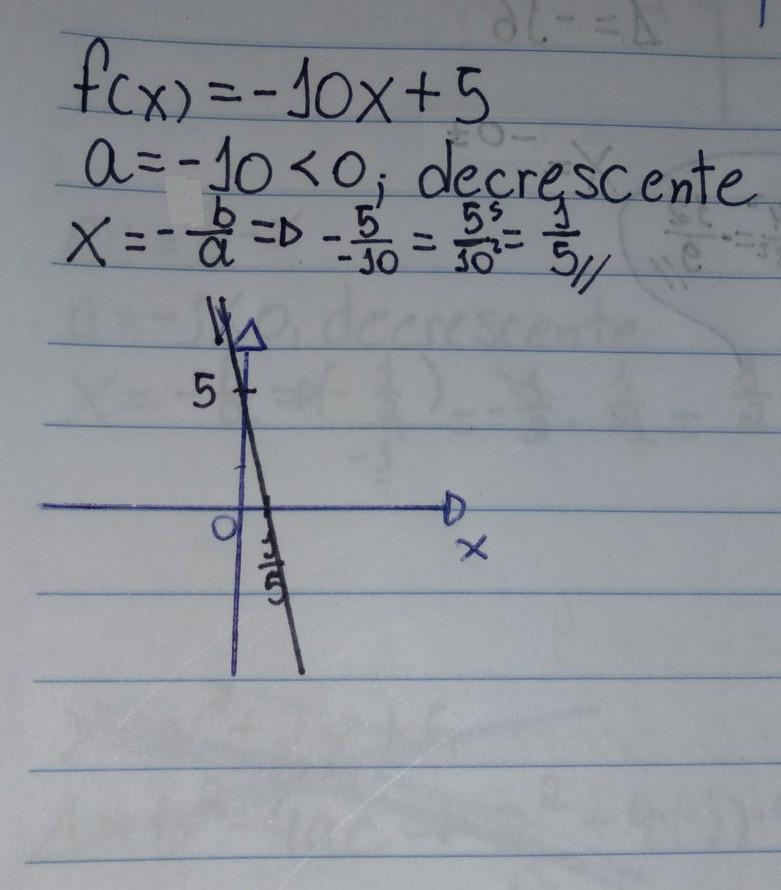 f(x) = -10x + 5
a = -10 < 0; decrescente
x = -b/a => -5/-10 = 5⁵/10² = 1/5//
5
0
x
1/5